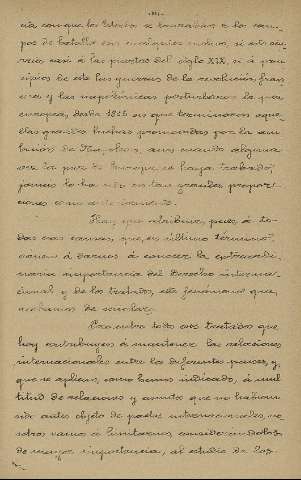 cia con que los Estados se lanzaban a los cam-
pos de batalla con cualquier motivo, si esto ocu-
rria casi á las puertas del siglo XIX, si á prin-
cipios de este las guerras de la revolución fran-
cesa y las napoleónicas perturbaron la paz
europea, desde 1815 en que terminaron aque-
llas grandes luchas promovidas por la am-
bición de Napoleon, aun cuando alguna
vez la paz de Europa se haya turbado,
jamás lo ha sido en tan grandes propor-
ciones como anteriormente.
Hay que atribuir, pues, á to-
das esas causas, que, en último término,
vienen á darnos á conocer la extraordi-
naria importancia del Derecho interna-
cional y de los tratados, este fenómeno que
acabamos de señalar.
Pero entre todos esos tratados que
hoy contribuyen á mantener las relaciones
internacionales entre los diferentes paises, y
que se aplican, como hemos indicado, á mul-
titud de relaciones y asuntos que no habian
sido antes objeto de pactos internacionales, no-
sotros vamos á limitarnos, considerándolos
de mayor importancia, al estudio de los